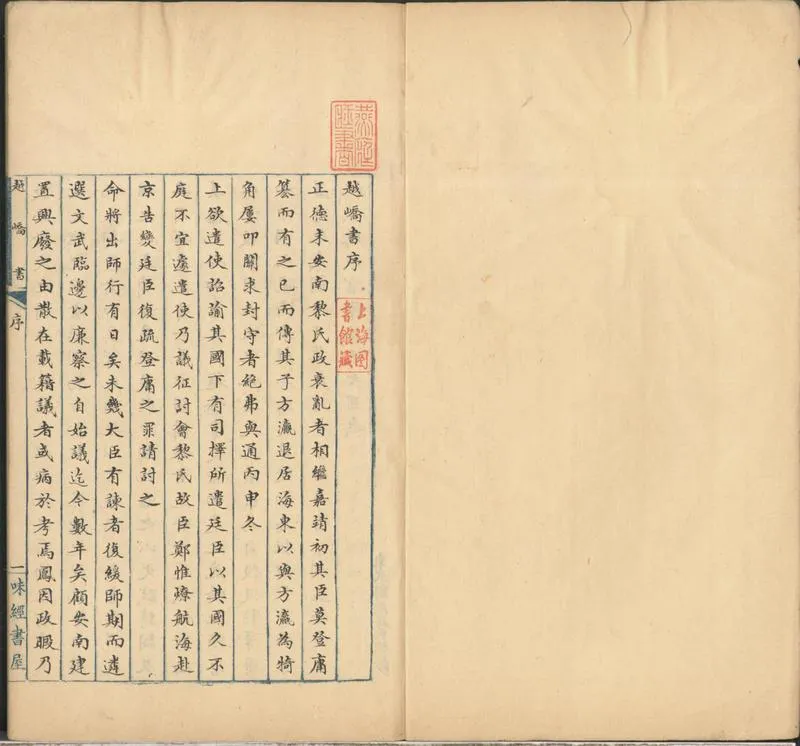 越嶠書序
正德末安南黎氏政衰亂者相繼嘉靖初其臣莫登庸
篡而有之已而傳其子方瀛退居海東以與方瀛為犄
角屢叩關求封守者絕弗與通丙申冬
上欲遣使詔諭其國下有司擇所遣廷臣以其國久不
庭不宜遽遣使乃議征討會黎氏故臣鄭惟憭航海赴
京告變廷臣復疏登庸之罪請討之
命將出師行有日矣未幾大臣有諫者復緩師期而遴
選文武臨邊以廉察之自始議迄今數年矣顧安南建
置興廢之由散在載籍議者或病於考焉鳳因政暇乃
越嶠書
序
二味經書屋
上海圖
書館藏